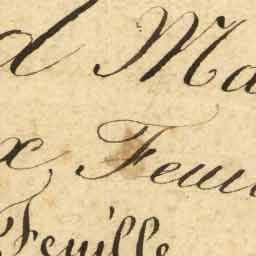 d Ma
x, Feui
Feuille